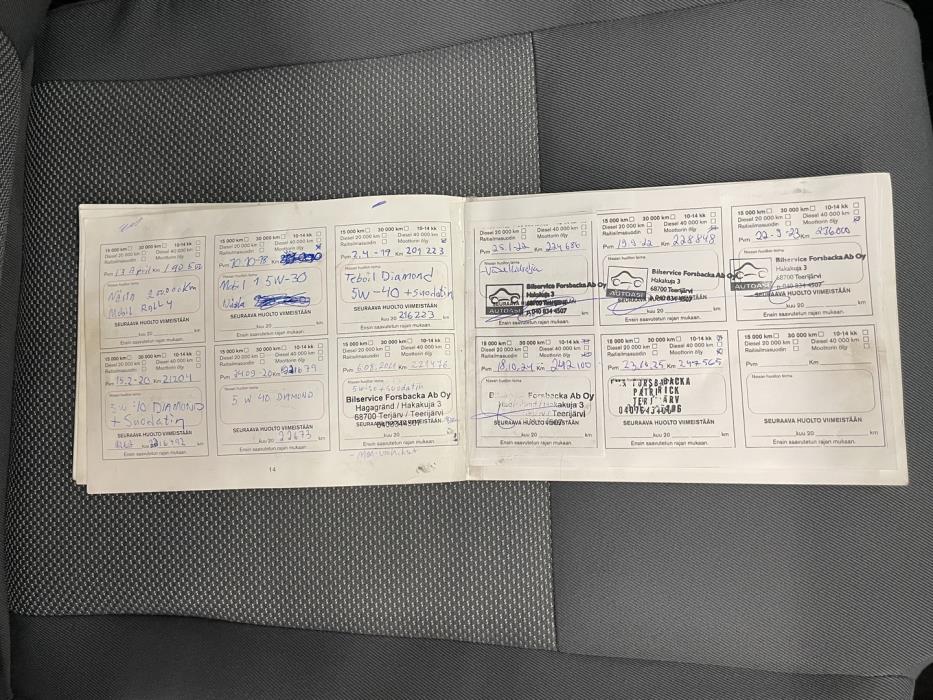 15 000 km 30 000 km 10-14 kk
Diesel 20 000 km Diesel 40 000 km
Raitisilmasuodin Moottorin öljy
Pvm 13 April Km
Nissan huollon leima
SEURAAVA HUOLTO VIIMEISTÄÄN
kuu 20 km
Ensin saavutetun rajan mukaan.
15 000 km 30 000 km 10-14 kk
Diesel 20 000 km Diesel 40 000 km
Raitisilmasuodin Moottorin öljy
Pvm 10-10-18 Km
Nissan huollon leima
Mobil 1 5W-30
SEURAAVA HUOLTO VIIMEISTÄÄN
kuu 20 km
Ensin saavutetun rajan mukaan.
15 000 km 30 000 km 10-14 kk
Diesel 20 000 km Diesel 40 000 km
Raitisilmasuodin Moottorin öljy
Pvm 2.4-19 Km 201 223
Nissan huollon leima
Teboil Diamond
5W-40 + suodatin
SEURAAVA HUOLTO VIIMEISTÄÄN
kuu 20 216223 km
Ensin saavutetun rajan mukaan.
15 000 km 30 000 km 10-14 kk
Diesel 20 000 km Diesel 40 000 km
Raitisilmasuodin Moottorin öljy
Pvm 15.2-20 Km 21204
Nissan huollon leima
5W-40 DIAMOND
+ Suodatin
SEURAAVA HUOLTO VIIMEISTÄÄN
kuu 20 km
Ensin saavutetun rajan mukaan.
15 000 km 30 000 km 10-14 kk
Diesel 20 000 km Diesel 40 000 km
Raitisilmasuodin Moottorin öljy
Pvm 24.09-20 Km
Nissan huollon leima
5 W 40 DIAMOND
SEURAAVA HUOLTO VIIMEISTÄÄN
kuu 20 km
Ensin saavutetun rajan mukaan.
15 000 km 30 000 km 10-14 kk
Diesel 20 000 km Diesel 40 000 km
Raitisilmasuodin Moottorin öljy
Pvm 6.08.2021 Km 221476
Nissan huollon leima
5w-30 + suodatin
Bilservice Forsbacka Ab Oy
Hagagränd / Hakakuja 3
68700 Terjärv / Teerijärvi
0408344507
SEURAAVA HUOLTO VIIMEISTÄÄN
kuu 20 km
Ensin saavutetun rajan mukaan.
14
15 000 km 30 000 km 10-14 kk
Diesel 20 000 km Diesel 40 000 km
Raitisilmasuodin Moottorin öljy
Pvm 25.1-22 Km 224 686
Nissan huollon leima
Vuosihuolto
Bilservice Forsbacka Ab Oy
Hakakuja 3
68700 Teerijärvi
AUTOASI p.040 834 4507
SEURAAVA HUOLTO VIIMEISTÄÄN
kuu 20 km
Ensin saavutetun rajan mukaan.
15 000 km 30 000 km 10-14 kk
Diesel 20 000 km Diesel 40 000 km
Raitisilmasuodin Moottorin öljy
Pvm 19.9-22 Km 228848
Nissan huollon leima
Bilservice Forsbacka Ab Oy
Hakakuja 3
68700 Teerijärvi
AUTOASI p.040 834 4507
SEURAAVA HUOLTO VIIMEISTÄÄN
kuu 20 km
Ensin saavutetun rajan mukaan.
15 000 km 30 000 km 10-14 kk
Diesel 20 000 km Diesel 40 000 km
Raitisilmasuodin Moottorin öljy
Pvm 22-9-23 Km 236000
Nissan huollon leima
Bilservice Forsbacka Ab Oy
Hakakuja 3
68700 Teerijärvi
AUTOASI p.040 834 4507
SEURAAVA HUOLTO VIIMEISTÄÄN
kuu 20 km
Ensin saavutetun rajan mukaan.
15 000 km 30 000 km 10-14 kk
Diesel 20 000 km Diesel 40 000 km
Raitisilmasuodin Moottorin öljy
Pvm 18.10.24 Km 242100
Nissan huollon leima
Forsbacka Ab Oy
Hakakuja 3
Teerijärvi
SEURAAVA HUOLTO VIIMEISTÄÄN
kuu 20 km
Ensin saavutetun rajan mukaan.
15 000 km 30 000 km 10-14 kk
Diesel 20 000 km Diesel 40 000 km
Raitisilmasuodin Moottorin öljy
Pvm Km 247565
Nissan huollon leima
FORSBACKA
PATRICK
TERJÄRV
SEURAAVA HUOLTO VIIMEISTÄÄN
kuu 20 km
Ensin saavutetun rajan mukaan.
15 000 km 30 000 km 10-14 kk
Diesel 20 000 km Diesel 40 000 km
Raitisilmasuodin Moottorin öljy
Pvm Km
Nissan huollon leima
SEURAAVA HUOLTO VIIMEISTÄÄN
kuu 20 km
Ensin saavutetun rajan mukaan.